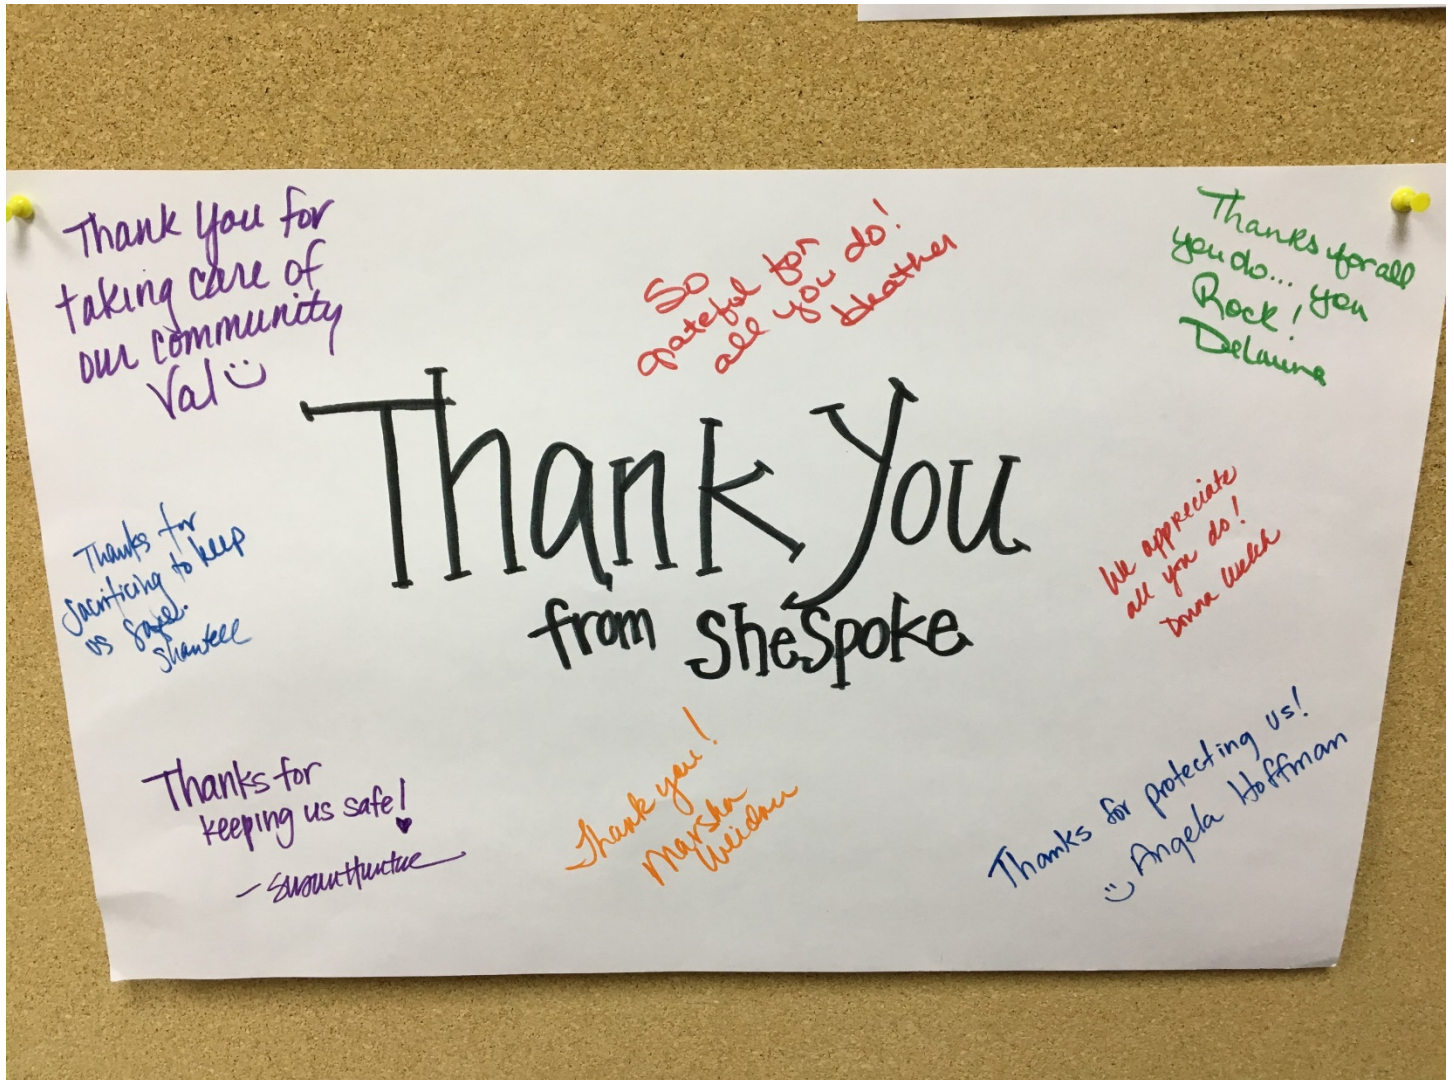 Thank You for
taking care of
our community
Val
So
grateful for
all you do!
Heather
Thanks for all
you do... you
Rock!
Thank You
from SheSpoke
Thanks for
sacrificing to keep
us safe.
Shawtell
We appreciate
all you do!
Donna Welch
Thanks for
keeping us safe!
- Susan Huntae
Thank you!
Marsha
Thanks for protecting us!
Angela Hoffman